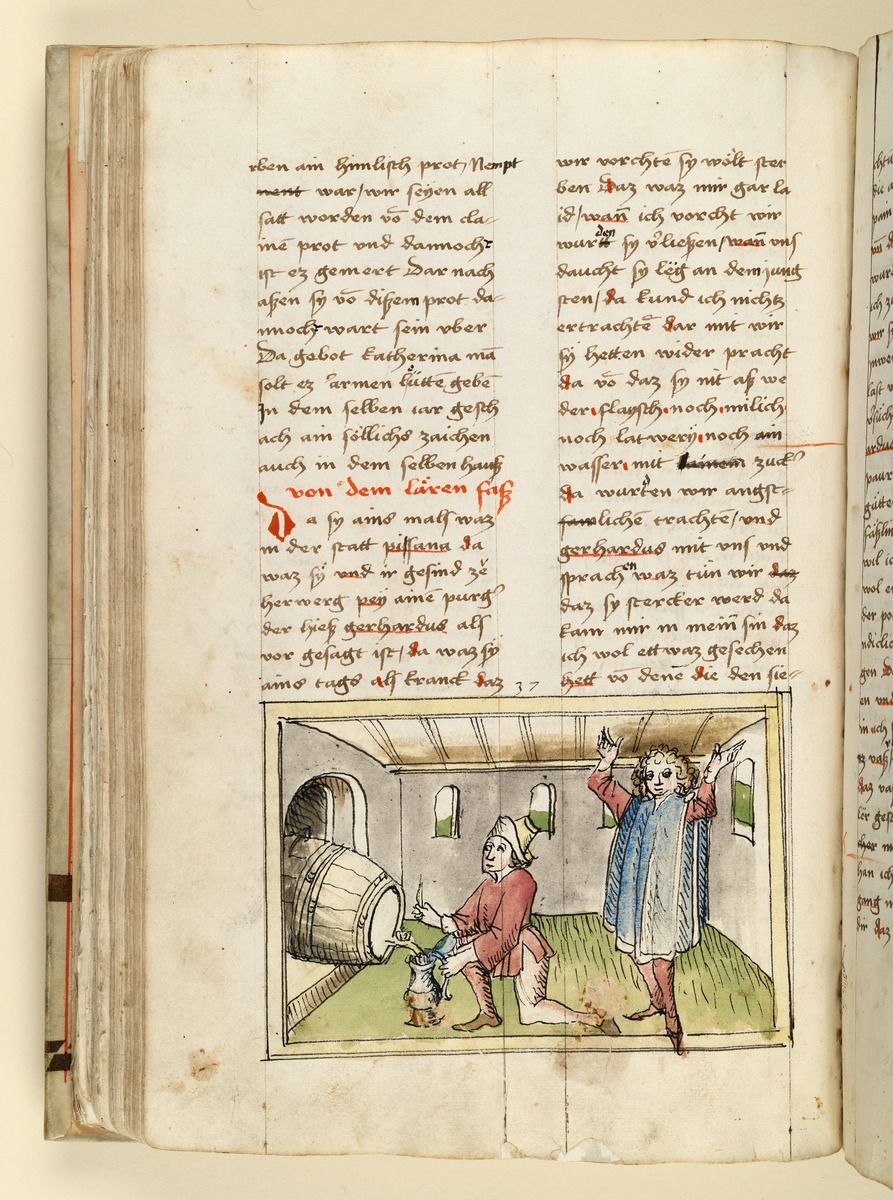 rben ain himlisch prot / Nempt
nent war / wir seyen all
satt worden vō dem cla-
inē prot vnd dannocht
ist ez gemert Dar nach
aßen sy vō dißem prot da-
nnocht wart sein vber
Da gebot katherina mā
solt ez armen lǔttē gebē
In dem selben iar gesch
ach ain söllichs zaichen
auch in dem selben hauß
von dem lären faß
Da sy ains mals waz
in der statt pissana da
waz sy vnd ir gesind zě
herwerg pey ainē purg
der hieß gerhardus als
vor gesagt ist / da waz sy
ains tags als kranck daz
wir vorchtē sy wölt ster
ben daz waz mir gar la
id / wañ ich vorcht wir
wurden sy v'ließen / wañ vns
daucht sy leg an dem iung
sten / da kund ich nichtz
ertrachtē dar mit wir
sy hetten wider pracht
da vō daz sy nit aß we
der flaysch noch milich
noch latwery noch ain
wasser mit zuck'
da wurten wir angst-
lichen trachtē / vnd
gerhardus mit vns vnd
sprachen waz tün wir daz
daz sy stercker werd da
kam mir in meiñ sin daz
ich wol ettwaz gesechen
hett vō denē die den sie-
37